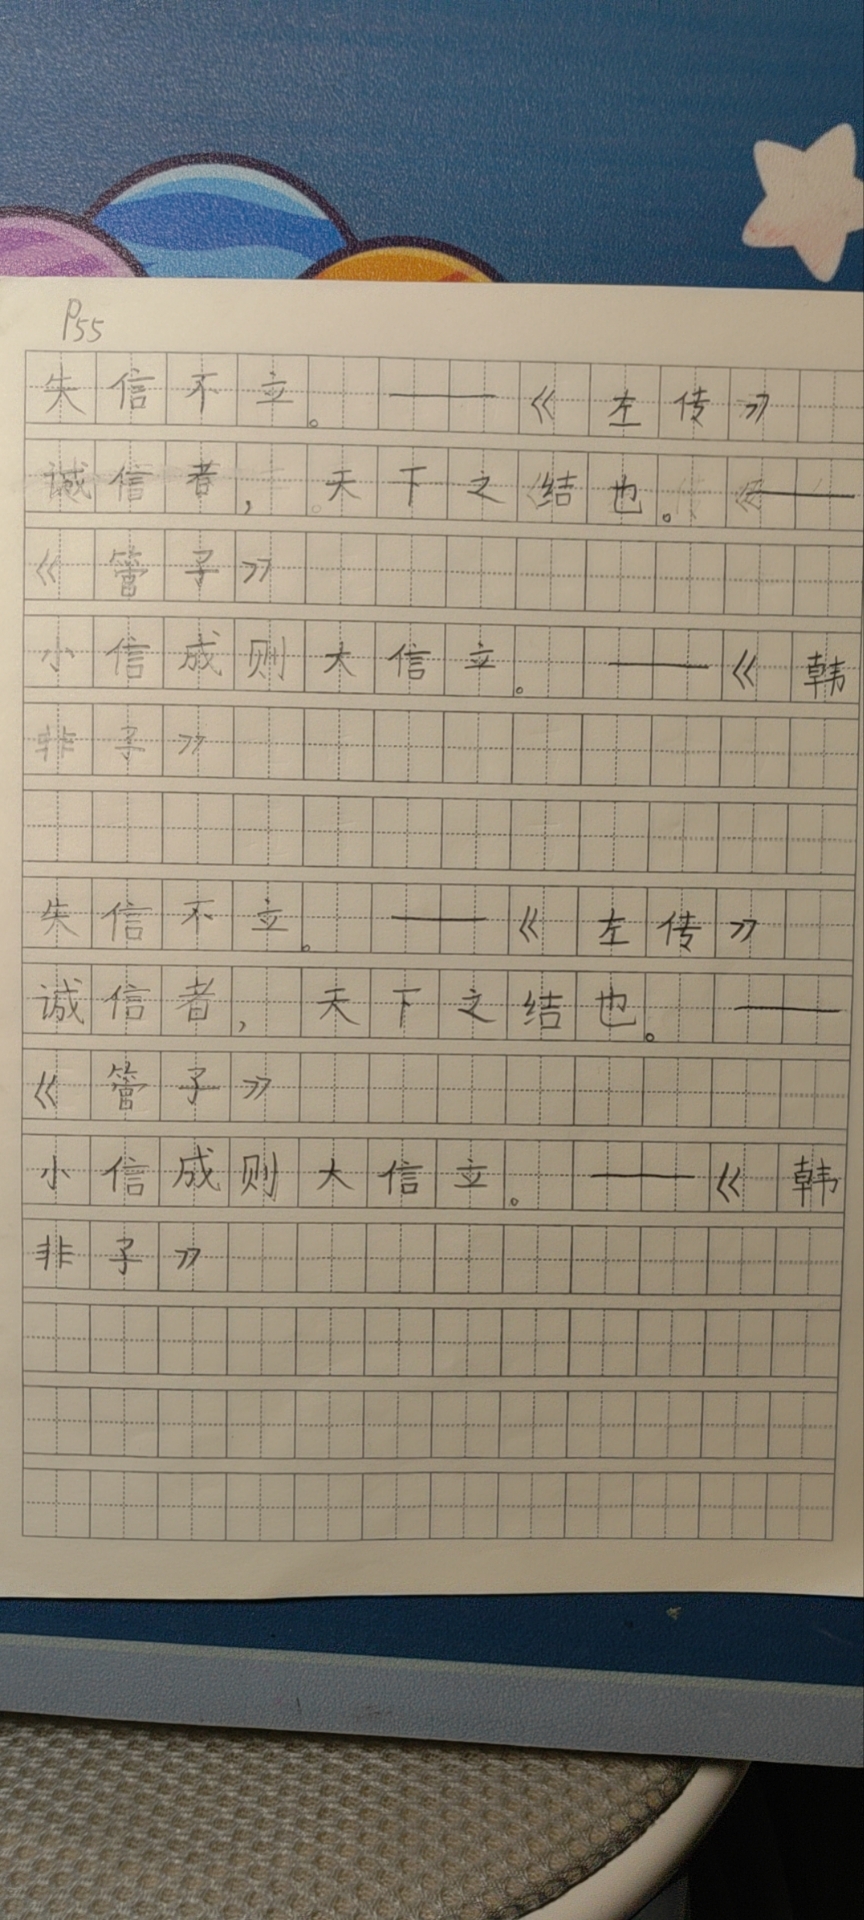 P55
失信不立。——《左传》
诚信者，天下之结也。——
《管子》
小信成则大信立。——《韩
非子》
失信不立。——《左传》
诚信者，天下之结也。——
《管子》
小信成则大信立。——《韩
非子》